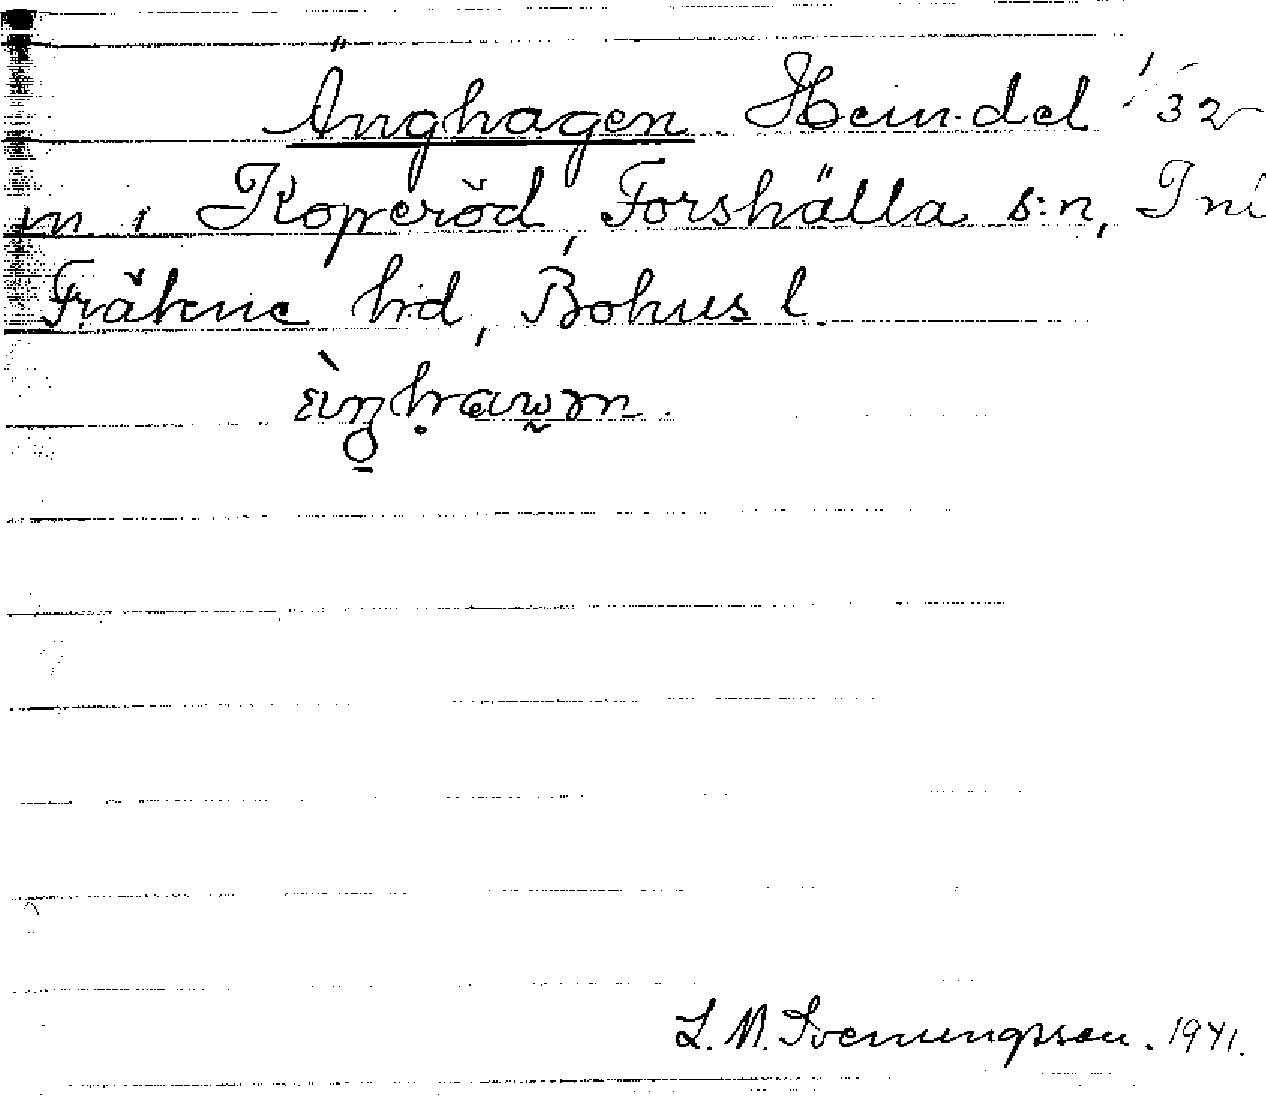 Änghagen Hem.del 1/32
m i Koperöd, Forshälla s:n, In
Fräkne hd, Bohus l.
L. M. Svenungsson. 1941.